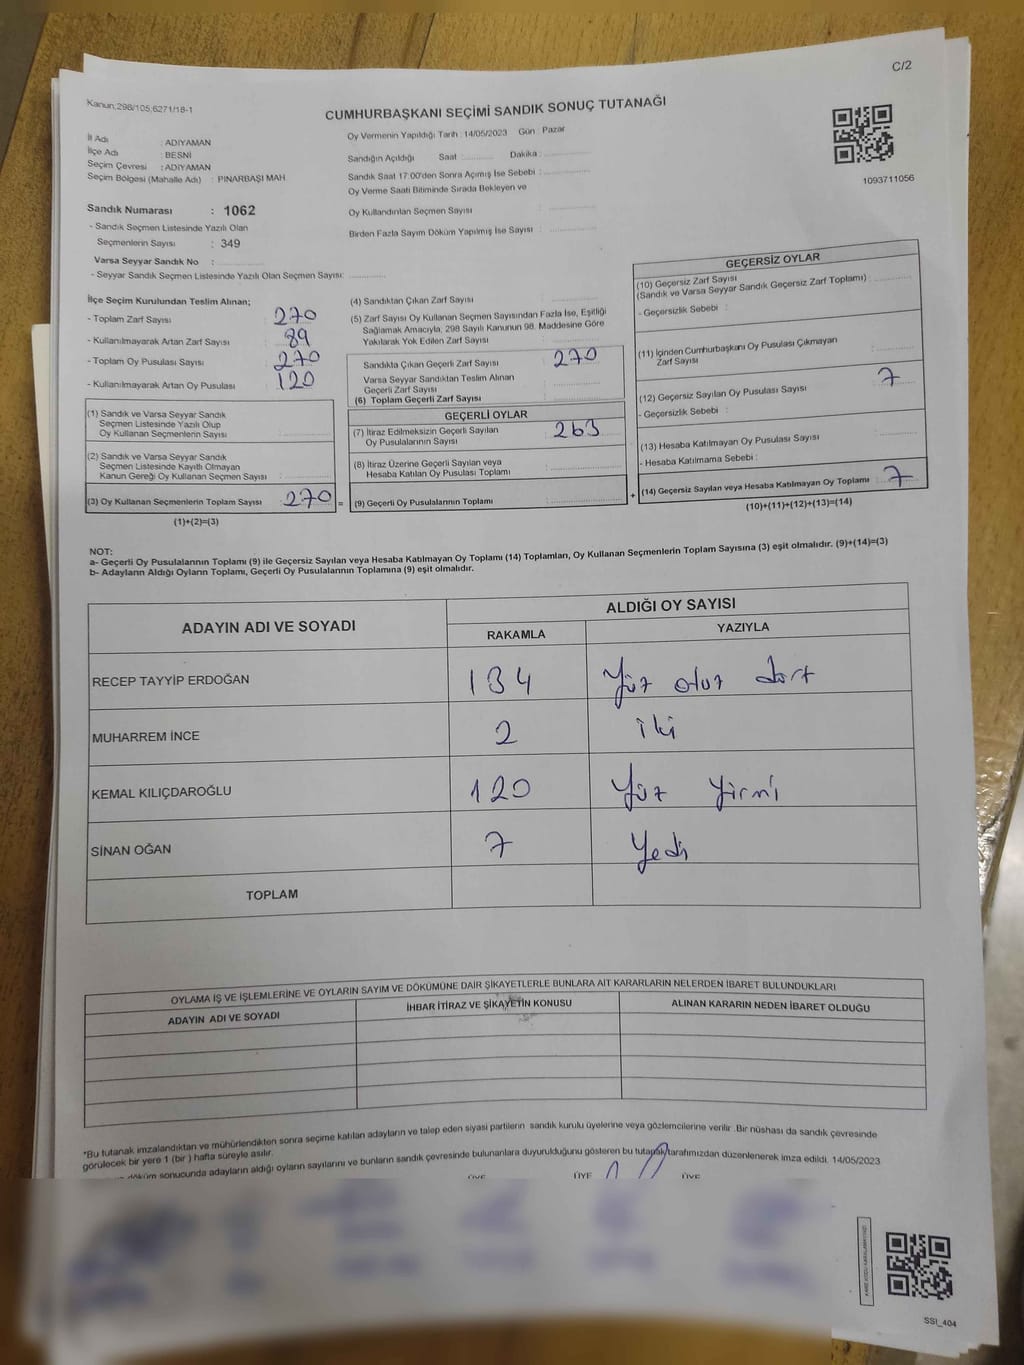 C/2
Kanun,298/105,6271/18-1
CUMHURBAŞKANI SEÇİMİ SANDIK SONUÇ TUTANAĞI
İl Adı : ADIYAMAN
İlçe Adı : BESNİ
Seçim Çevresi : ADIYAMAN
Seçim Bölgesi (Mahalle Adı) : PINARBAŞI MAH
Oy Vermenin Yapıldığı Tarih : 14/05/2023 Gün Pazar
Sandığın Açıldığı Saat : Dakika :
Sandık Saat 17:00'den Sonra Açımış İse Sebebi :
Oy Verme Saati Bitiminde Sırada Bekleyen ve
Oy Kullandırılan Seçmen Sayısı :
Birden Fazla Sayım Döküm Yapılmış İse Sayısı :
1093711056
Sandık Numarası : 1062
- Sandık Seçmen Listesinde Yazılı Olan
Seçmenlerin Sayısı : 349
Varsa Seyyar Sandık No :
- Seyyar Sandık Seçmen Listesinde Yazılı Olan Seçmen Sayısı:
İlçe Seçim Kurulundan Teslim Alınan;
- Toplam Zarf Sayısı : 270
- Kullanılmayarak Artan Zarf Sayısı : 89
- Toplam Oy Pusulası Sayısı : 270
- Kullanılmayarak Artan Oy Pusulası : 120
(1) Sandık ve Varsa Seyyar Sandık
Seçmen Listesinde Yazılı Olup
Oy Kullanan Seçmenlerin Sayısı :
(2) Sandık ve Varsa Seyyar Sandık
Seçmen Listesinde Kayıtlı Olmayan
Kanun Gereği Oy Kullanan Seçmen Sayısı :
(3) Oy Kullanan Seçmenlerin Toplam Sayısı : 270 =
(1)+(2)=(3)
(4) Sandıktan Çıkan Zarf Sayısı :
(5) Zarf Sayısı Oy Kullanan Seçmen Sayısından Fazla İse, Eşitliği
Sağlamak Amacıyla, 298 Sayılı Kanunun 98. Maddesine Göre
Yakılarak Yok Edilen Zarf Sayısı :
Sandıkta Çıkan Geçerli Zarf Sayısı : 270
Varsa Seyyar Sandıktan Teslim Alınan
Geçerli Zarf Sayısı :
(6) Toplam Geçerli Zarf Sayısı :
GEÇERLİ OYLAR
(7) İtiraz Edilmeksizin Geçerli Sayılan
Oy Pusulalarının Sayısı : 263
(8) İtiraz Üzerine Geçerli Sayılan veya
Hesaba Katılan Oy Pusulası Toplamı :
(9) Geçerli Oy Pusulalarının Toplamı : +
GEÇERSİZ OYLAR
(10) Geçersiz Zarf Sayısı
(Sandık ve Varsa Seyyar Sandık Geçersiz Zarf Toplamı) :
- Geçersizlik Sebebi :
(11) İçinden Cumhurbaşkanı Oy Pusulası Çıkmayan
Zarf Sayısı :
(12) Geçersiz Sayılan Oy Pusulası Sayısı : 7
- Geçersizlik Sebebi :
(13) Hesaba Katılmayan Oy Pusulası Sayısı :
- Hesaba Katılmama Sebebi :
(14) Geçersiz Sayılan veya Hesaba Katılmayan Oy Toplamı : 7
(10)+(11)+(12)+(13)=(14)
NOT:
a- Geçerli Oy Pusulalarının Toplamı (9) ile Geçersiz Sayılan veya Hesaba Katılmayan Oy Toplamı (14) Toplamları, Oy Kullanan Seçmenlerin Toplam Sayısına (3) eşit olmalıdır. (9)+(14)=(3)
b- Adayların Aldığı Oyların Toplamı, Geçerli Oy Pusulalarının Toplamına (9) eşit olmalıdır.
ADAYIN ADI VE SOYADI
ALDIĞI OY SAYISI
RAKAMLA YAZIYLA
RECEP TAYYİP ERDOĞAN 134 Yüz otuz dört
MUHARREM İNCE 2 iki
KEMAL KILIÇDAROĞLU 120 Yüz Yirmi
SİNAN OĞAN 7 Yedi
TOPLAM
OYLAMA İŞ VE İŞLEMLERİNE VE OYLARIN SAYIM VE DÖKÜMÜNE DAİR ŞİKAYETLERLE BUNLARA AİT KARARLARIN NELERDEN İBARET BULUNDUKLARI
ADAYIN ADI VE SOYADI İHBAR İTİRAZ VE ŞİKAYETİN KONUSU ALINAN KARARIN NEDEN İBARET OLDUĞU
*Bu tutanak imzalandıktan ve mühürlendikten sonra seçime katılan adayların ve talep eden siyasi partilerin sandık kurulu üyelerine veya gözlemcilerine verilir .Bir nüshası da sandık çevresinde
görülecek bir yere 1 (bir ) hafta süreyle asılır.
döküm sonucunda adayların aldığı oyların sayılarını ve bunların sandık çevresinde bulunanlara duyurulduğunu gösteren bu tutanak tarafımızdan düzenlenerek imza edildi. 14/05/2023
ÜYE ÜYE ÜYE
SSI_404